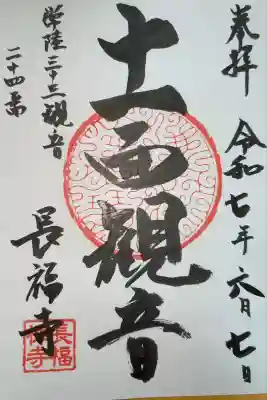 奉拝 令和七年六月七日
十一面観音
常陸三十三観音
二十四番
長福寺
長福寺